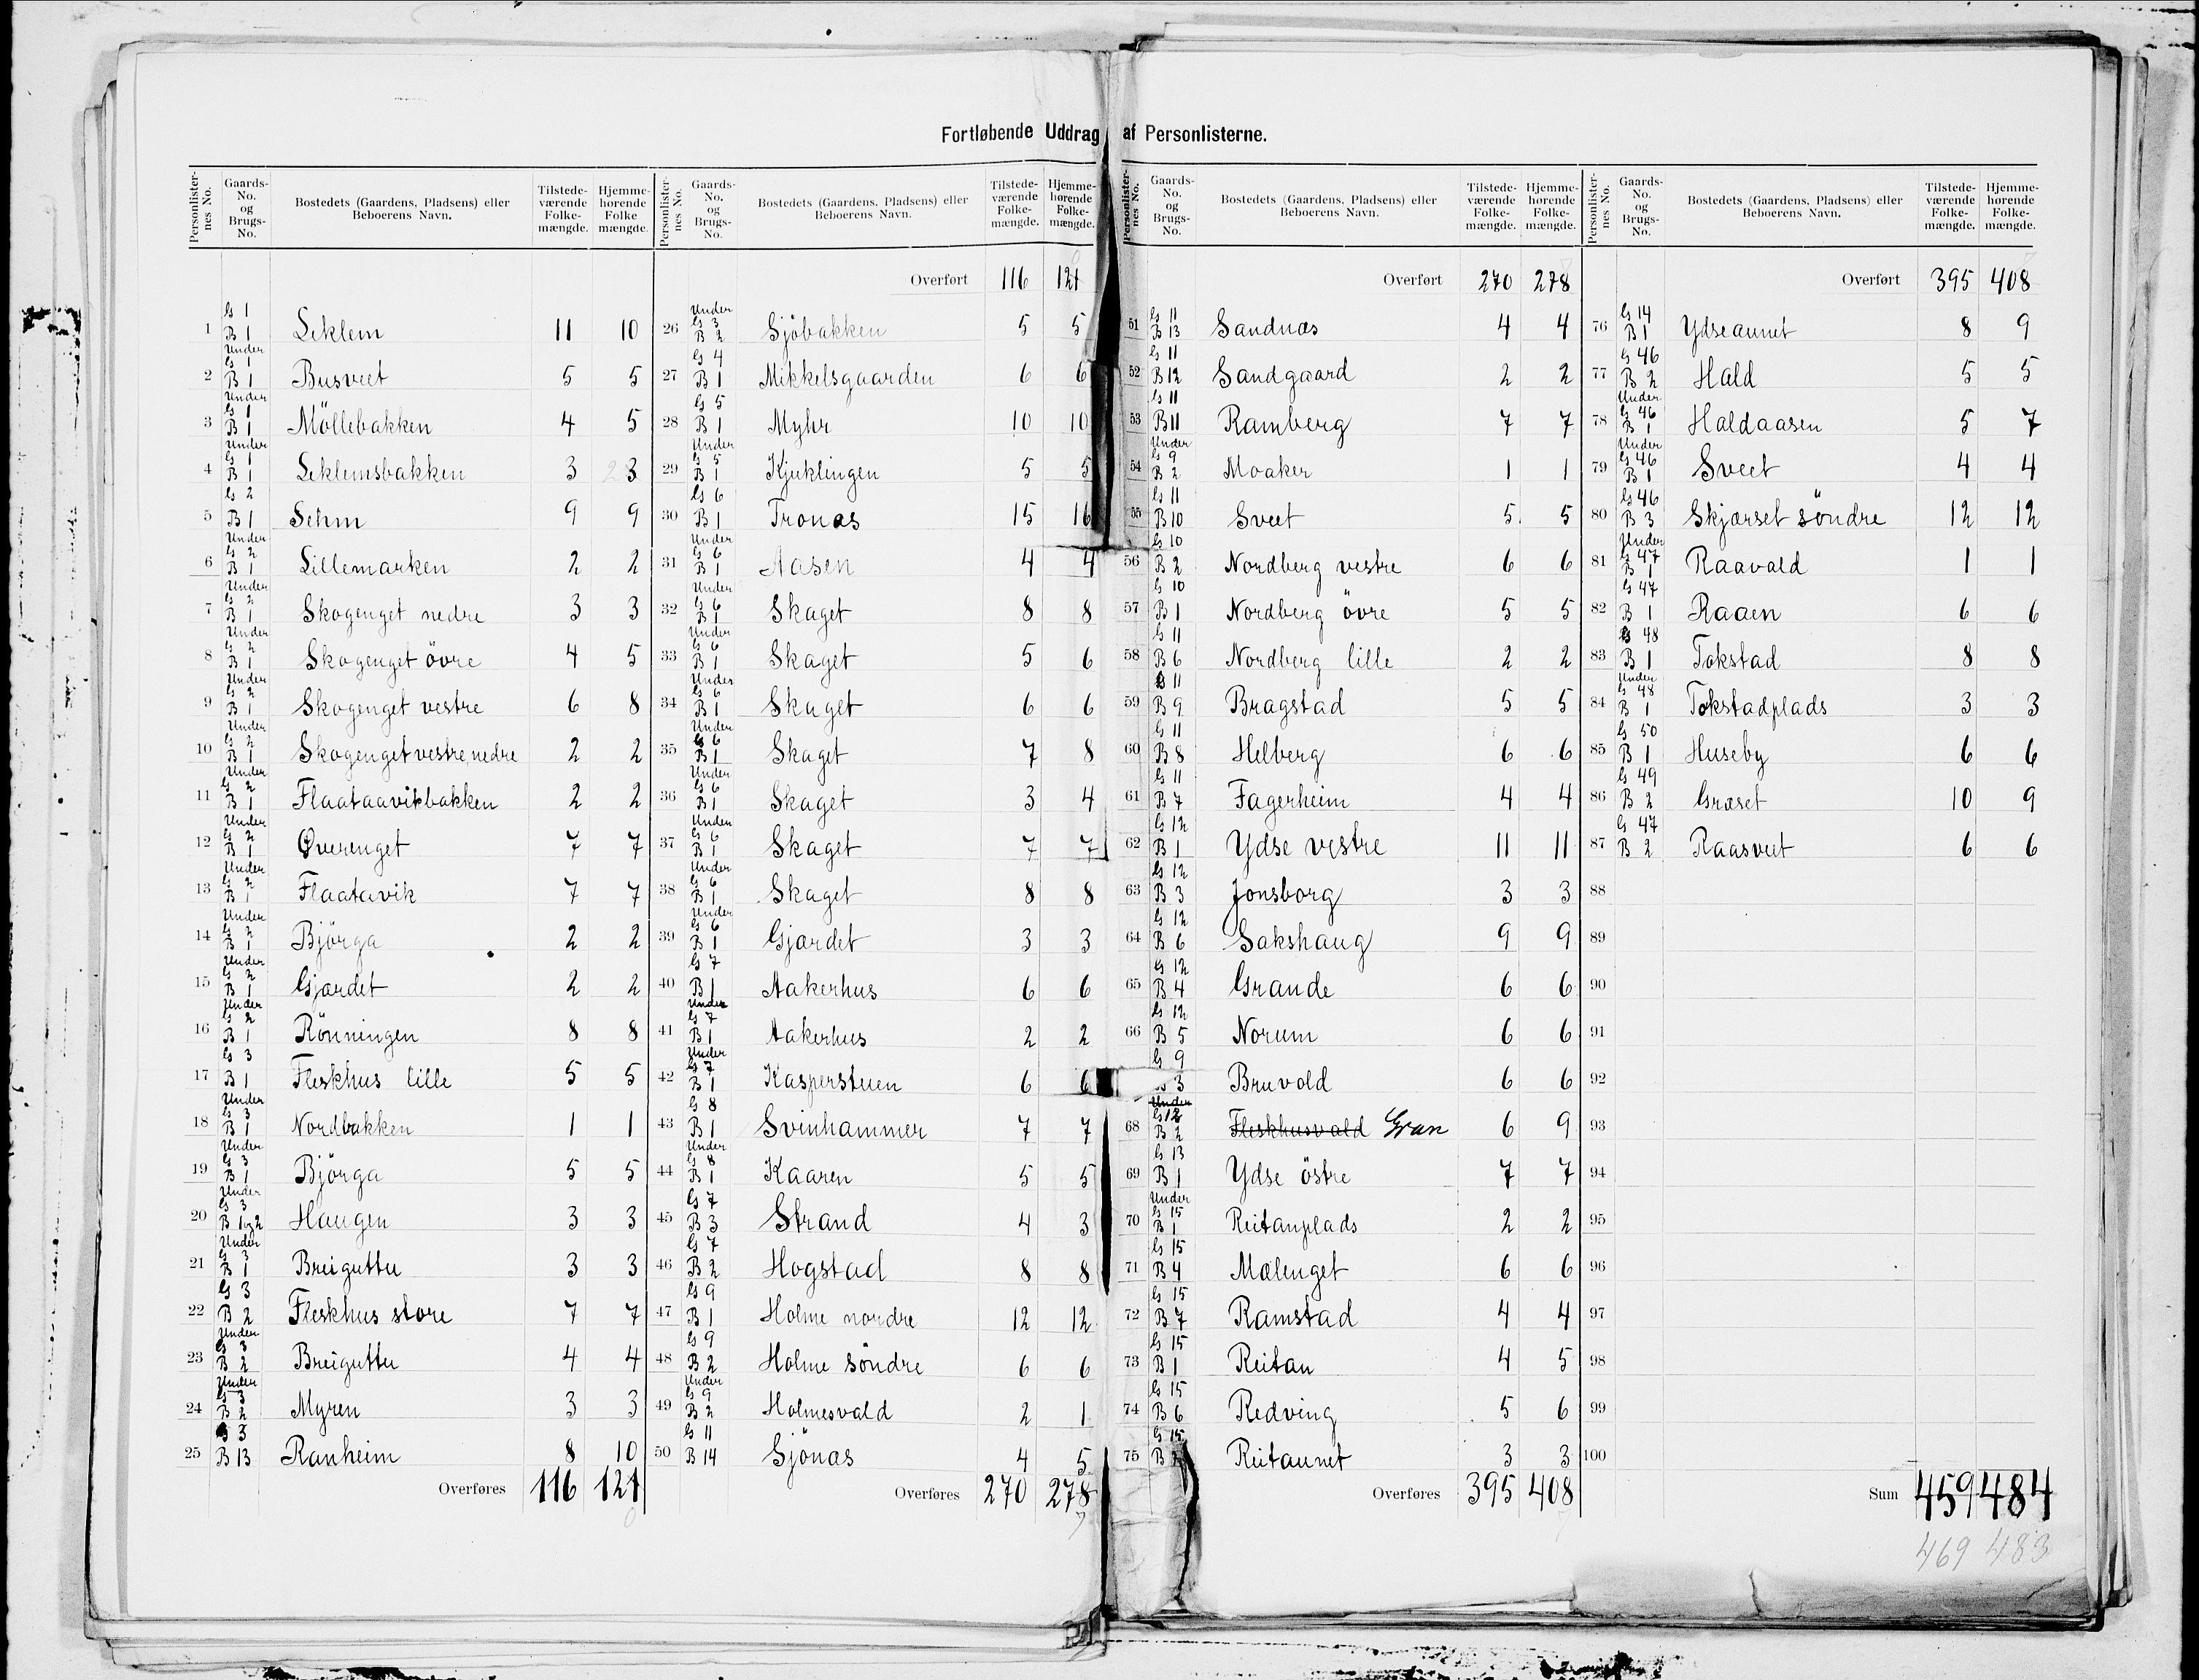 Fortløbende Uddrag af Personlisterne.
Personlisternes No. Gaards-No. og Brugs-No. Bostedets (Gaardens, Pladsens) eller Beboerens Navn. Tilstedeværende Folkemængde. Hjemmehørende Folkemængde.
1 G 1 B 1 Leklem 11 10
2 Under G 1 B 1 Busveet 5 5
3 Under G 1 B 1 Möllebakken 4 5
4 Under G 1 B 1 Leklemsbakken 3 3
5 G 2 B 1 Sehm 9 9
6 Under G 2 B 1 Lillemarken 2 2
7 Under G 2 B 1 Skogenget nedre 3 3
8 Under G 2 B 1 Skogenget övre 4 5
9 Under G 2 B 1 Skogenget vestre 6 8
10 Under G 2 B 1 Skogenget vestre, nedre 2 2
11 Under G 2 B 1 Flaataavikbakken 2 2
12 Under G 2 B 1 Øverenget 7 7
13 Under G 2 B 1 Flaatavik 7 7
14 Under G 2 B 1 Bjørga 2 2
15 Under G 2 B 1 Gjærdet 2 2
16 Under G 2 B 1 Rönningen 8 8
17 G 3 B 1 Fleskhus lille 5 5
18 Under G 3 B 1 Nordbakken 1 1
19 Under G 3 B 1 Bjørga 5 5
20 Under G 3 B 1og2 Haugen 3 3
21 Under G 3 B 1 Breiguttu 3 3
22 G 3 B 2 Fleskhus store 7 7
23 Under G 3 B 2 Breiguttu 4 4
24 Under G 3 B 2 Myren 3 3
25 G 3 B 13 Ranheim 8 10
Overføres 116 121
0
Personlisternes No. Gaards-No. og Brugs-No. Bostedets (Gaardens, Pladsens) eller Beboerens Navn. Tilstedeværende Folkemængde. Hjemmehørende Folkemængde.
Overført 116 121
26 Under G 3 B 2 Sjöbakken 5 5
27 G 4 B 1 Mikkelsgaarden 6 6
28 G 5 B 1 Myhr 10 10
29 Under G 5 B 1 Kjuklingen 5 5
30 G 6 B 1 Tronæs 15 16
31 Under G 6 B 1 Aasen 4 4
32 Under G 6 B 1 Skaget 8 8
33 Under G 6 B 1 Skaget 5 6
34 Under G 6 B 1 Skaget 6 6
35 Under G 6 B 1 Skaget 7 8
36 Under G 6 B 1 Skaget 3 4
37 Under G 6 B 1 Skaget 7 7
38 Under G 6 B 1 Skaget 8 8
39 Under G 6 B 1 Gjærdet 3 3
40 G 7 B 1 Aakerhus 6 6
41 Under G 7 B 1 Aakerhus 2 2
42 Under G 7 B 1 Kasperstuen 6 6
43 G 8 B 1 Svinhammer 7 7
44 Under G 8 B 1 Kaaren 5 5
45 G 7 B 3 Strand 4 3
46 G 7 B 2 Hogstad 8 8
47 G 9 B 1 Holme nordre 12 12
48 G 9 B 2 Holme söndre 6 6
49 Under G 9 B 2 Holmesvald 2 1
50 G 11 B 14 Sjönæs 4 5
Overføres 270 278
7
Personlisternes No. Gaards-No. og Brugs-No. Bostedets (Gaardens, Pladsens) eller Beboerens Navn. Tilstedeværende Folkemængde. Hjemmehørende Folkemængde.
Overført 270 278
51 G 11 B 13 Sandnæs 4 4
52 G 11 B 12 Sandgaard 2 2
53 G 11 B 11 Ramberg 7 7
54 Under G 9 B 2 Moaker 1 1
55 G 11 B 10 Sveet 5 5
56 G 10 B 2 Nordberg vestre 6 6
57 G 10 B 1 Nordberg övre 5 5
58 G 11 B 6 Nordberg lille 2 2
59 G 11 B 9 Bragstad 5 5
60 G 11 B 8 Helberg 6 6
61 G 11 B 7 Fagerheim 4 4
62 G 12 B 1 Ydse vestre 11 11
63 G 12 B 3 Jonsborg 3 3
64 G 12 B 6 Sakshaug 9 9
65 G 12 B 4 Grande 6 6
66 G 12 B 5 Norum 6 6
G 9 B 3 Bruvold 6 6
68 Under G 12 B 2 Fleskhusvald Gran 6 9
69 G 13 B 1 Ydse östre 7 7
70 Under G 15 B 1 Reitanplads 2 2
71 G 15 B 4 Mælenget 6 6
72 G 15 B 7 Ramstad 4 4
73 G 15 B 1 Reitan 4 5
74 G 15 B 6 Redving 5 6
75 G 15 B Reitaunet 3 3
Overføres 395 408
7
Personlisternes No. Gaards-No. og Brugs-No. Bostedets (Gaardens, Pladsens) eller Beboerens Navn. Tilstedeværende Folkemængde. Hjemmehørende Folkemængde.
Overført 395 408
76 G 14 B 1 Ydseaunet 8 9
77 G 46 B 2 Hald 5 5
78 Under G 46 B 1 Haldaasen 5 7
79 Under G 46 B 1 Sveet 4 4
80 G 46 B 3 Skjærset söndre 12 12
81 Under G 47 B 1 Raavald 1 1
82 G 47 B 1 Raaen 6 6
83 G 48 B 1 Tokstad 8 8
84 Under G 48 B 1 Tokstadplads 3 3
85 G 50 B 1 Huseby 6 6
86 G 49 B 2 Græset 10 9
87 G 47 B 2 Raasveet 6 6
88
89
90
91
92
93
94
95
96
97
98
99
100
Sum 459 484
469 483